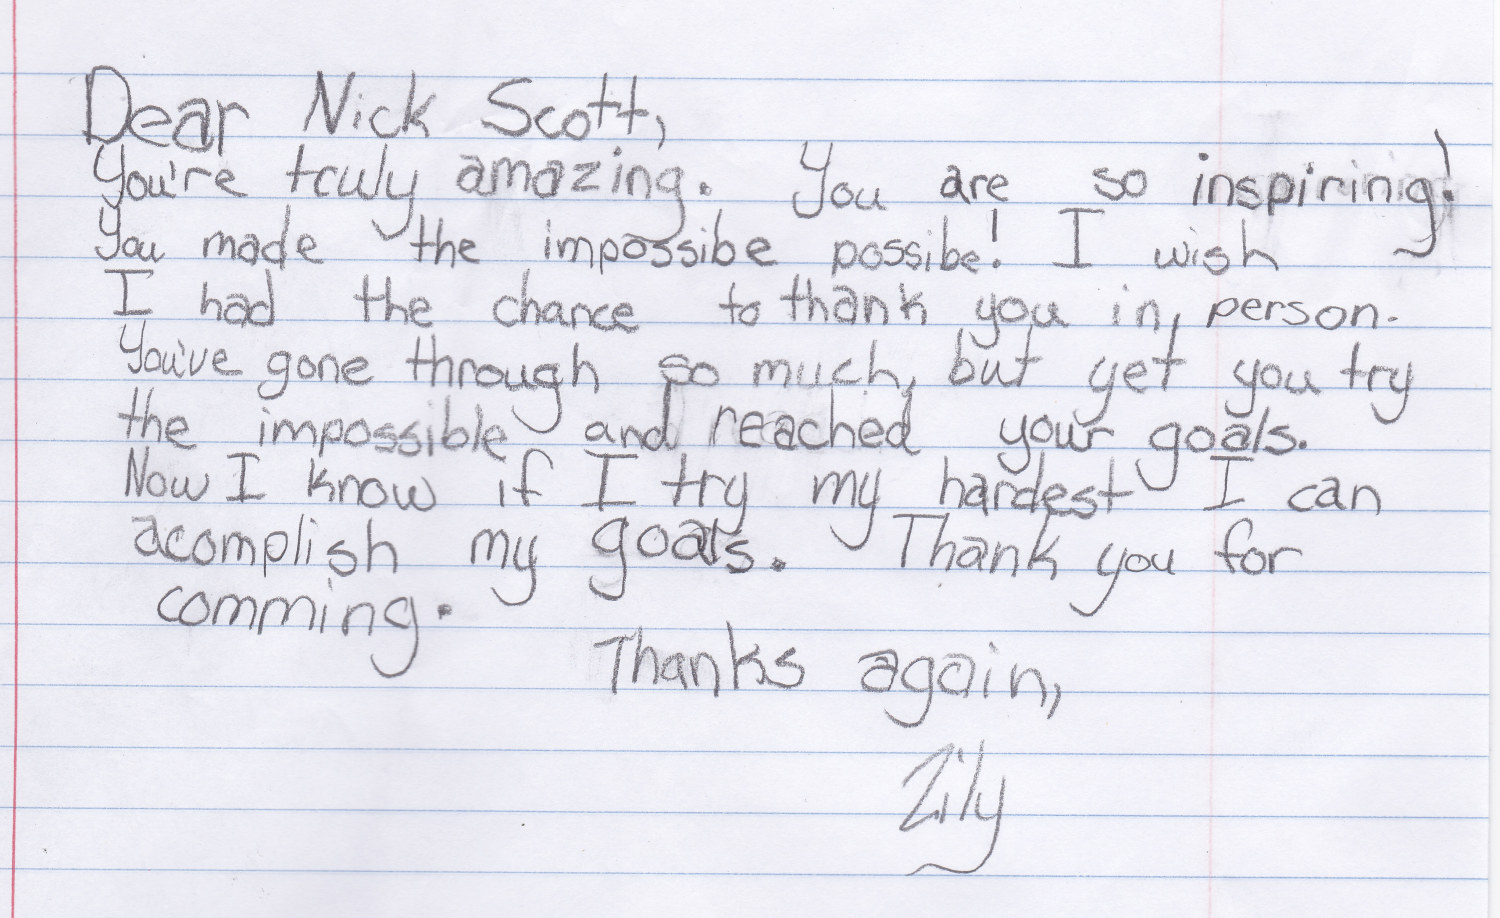 Dear Nick Scott,
You're truly amazing. You are so inspirinig!
You made the impossibe possibe! I wish
I had the chance to thank you in, person.
You've gone through so much, but yet you try
the impossible and reached your goals.
Now I know if I try my hardest I can
acomplish my goals. Thank you for
comming.
Thanks again,
Zily